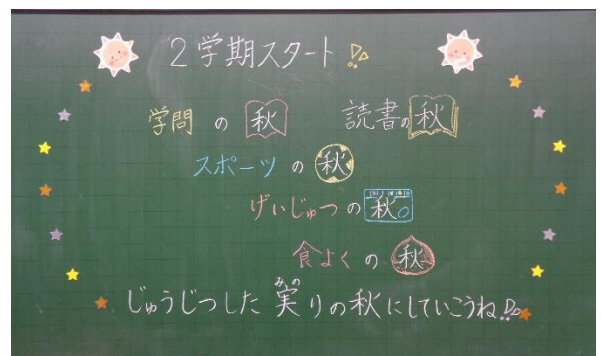 2学期スタート!!
学問の秋 読書の秋
スポーツの秋
げいじゅつの秋
食よくの秋
みの
じゅうじつした実りの秋にしていこうね!!